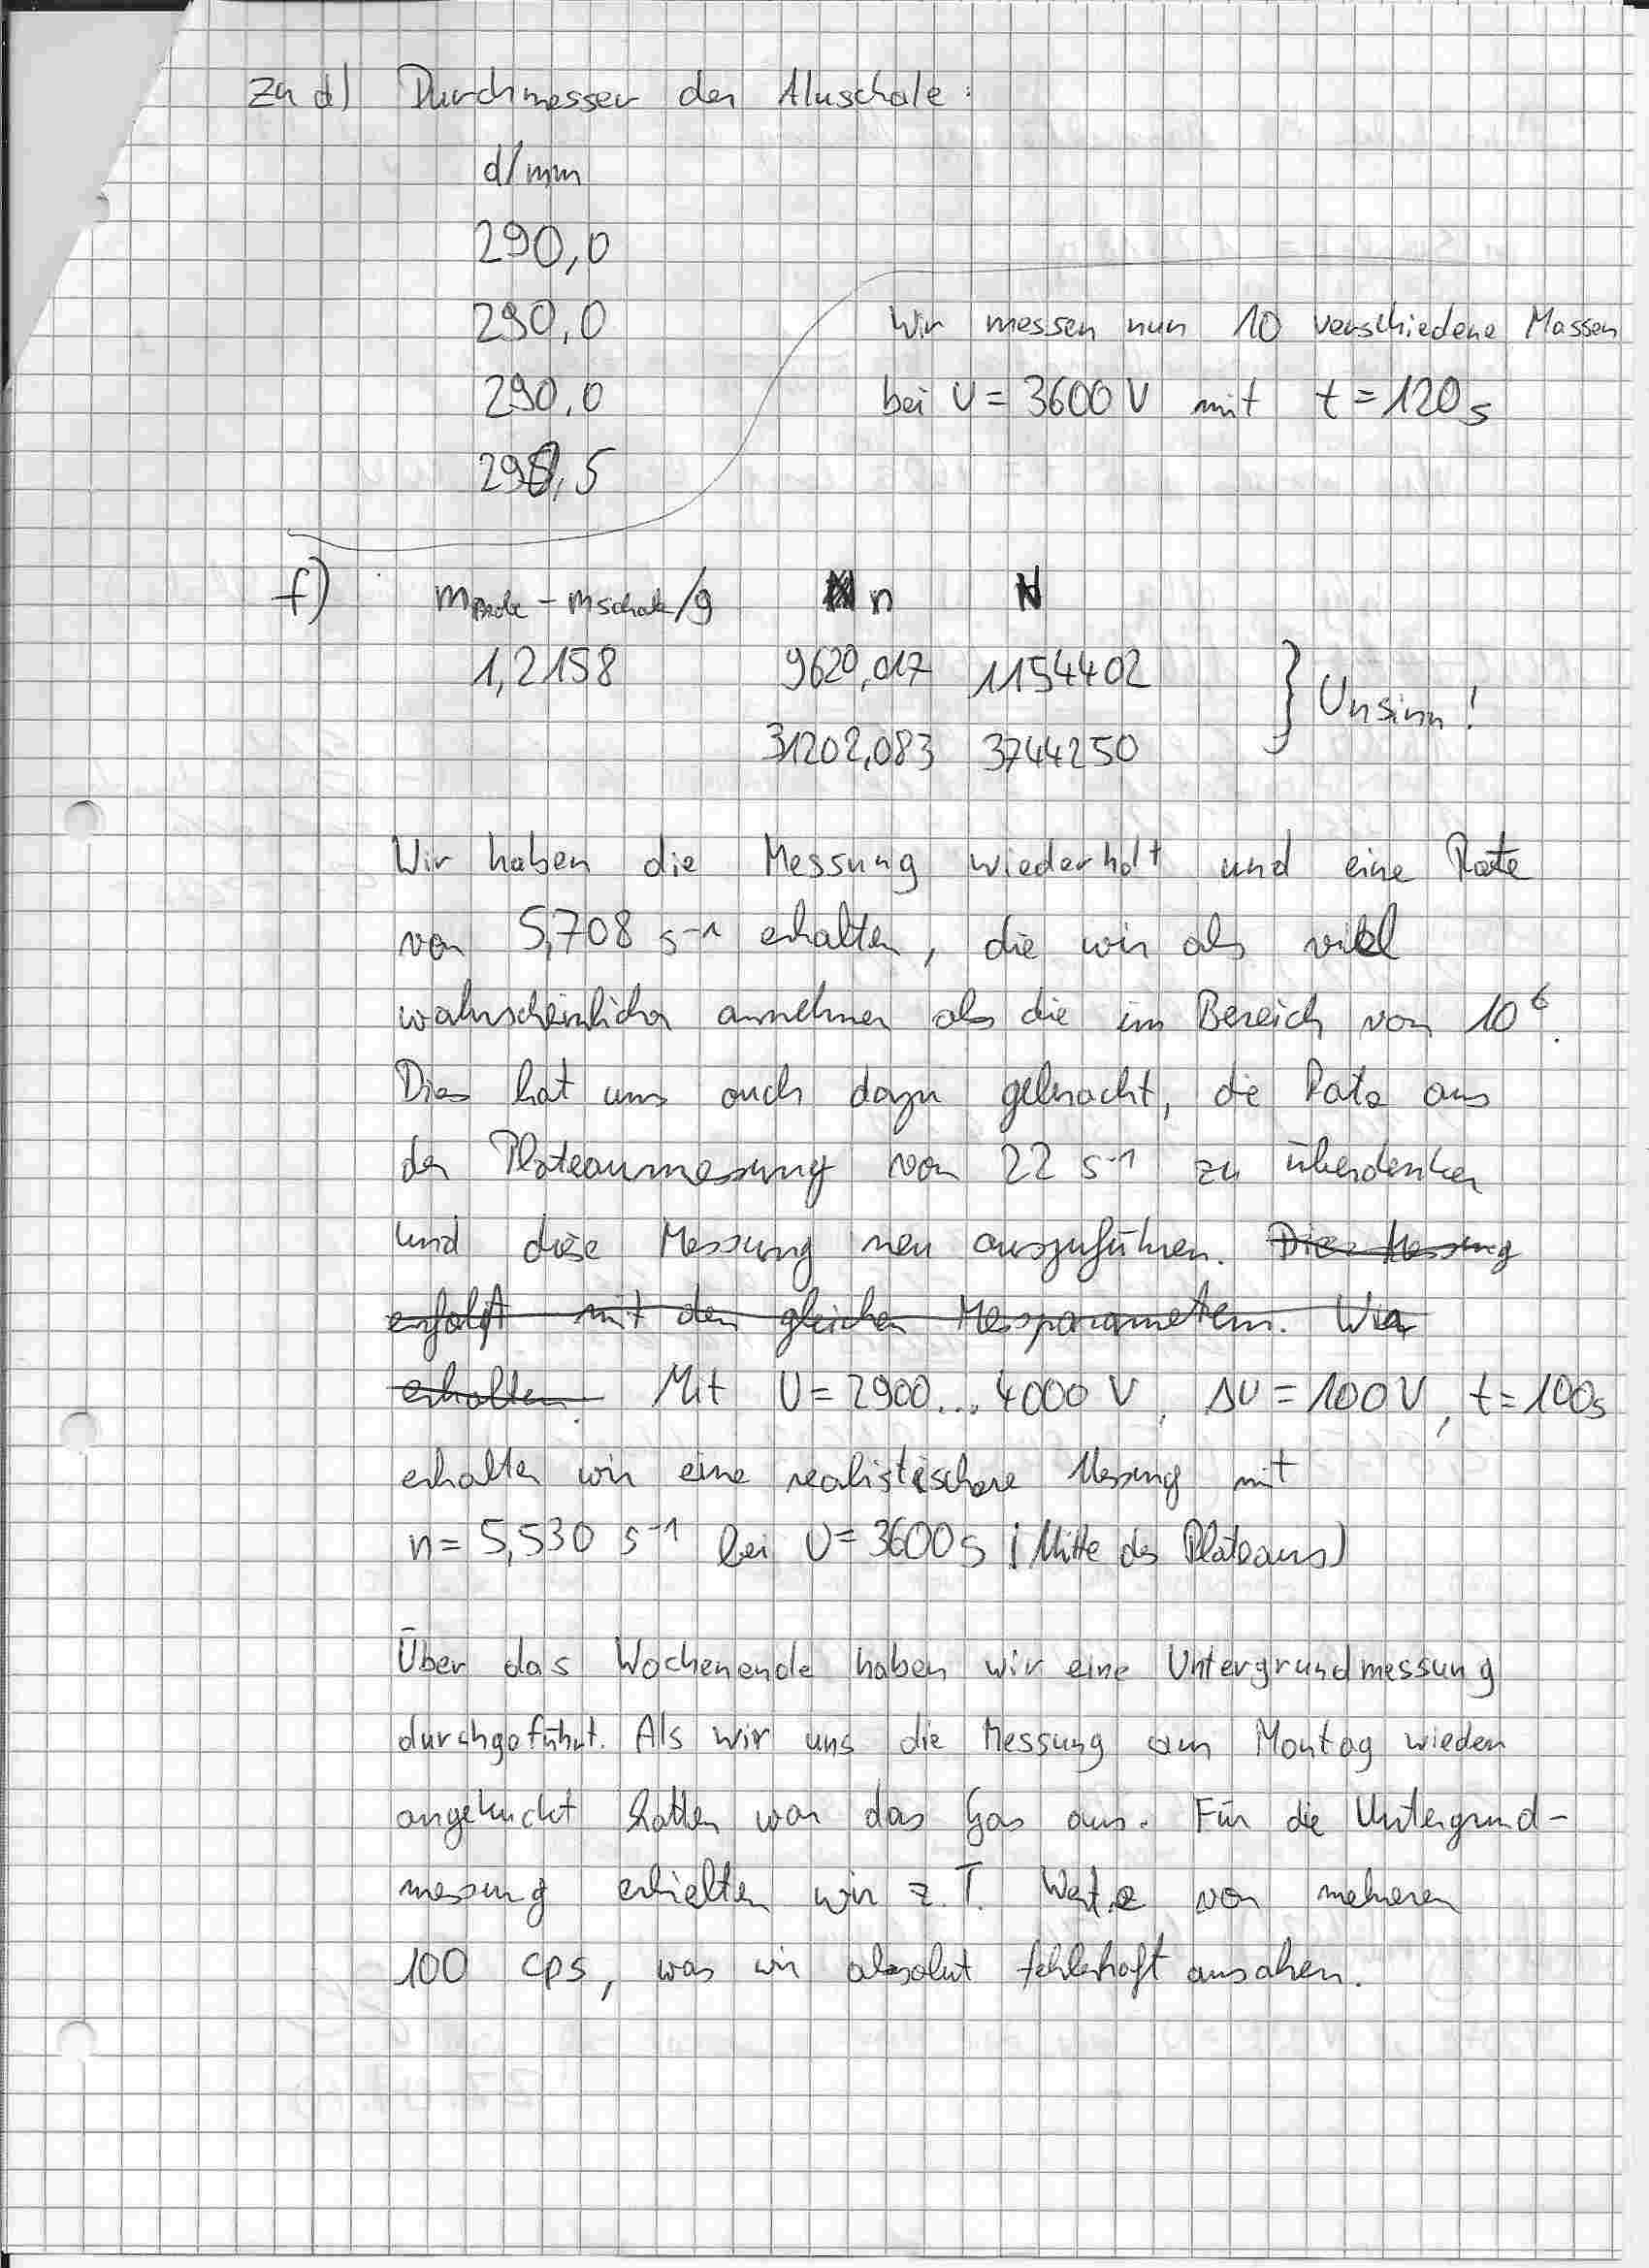 Zu d) Durchmesser der Aluschale:
d/mm
290,0
290,0
290,0
290,5
Wir messen nun 10 verschiedene Massen
bei U = 3600 V mit t = 120 s
f) mProbe - mSchale/g n N
1,2158 9620,017 1154402
31202,083 3744250
} Unsinn!
Wir haben die Messung wiederholt und eine Rate
von 5,708 s⁻¹ erhalten, die wir als viel
wahrscheinlicher annehmen als die im Bereich von 10⁶.
Dies hat uns auch dazu gebracht, die Rate aus
der Plateaumessung von 22 s⁻¹ zu überdenken
und diese Messung neu auszuführen. Die Messung
erfolgt mit den gleichen Messparametern. Wir
erhalten. Mit U = 2900...4000 V, ΔU = 100 V, t = 100s
erhalten wir eine realistischere Messung mit
n = 5,530 s⁻¹ bei U = 3600 s (Mitte des Plateaus)
Über das Wochenende haben wir eine Untergrundmessung
durchgeführt. Als wir uns die Messung am Montag wieder
angekuckt hatten war das Gas aus. Für die Untergrund-
messung erhielten wir z.T. Werte von mehreren
100 cps, was wir absolut fehlerhaft ansahen.